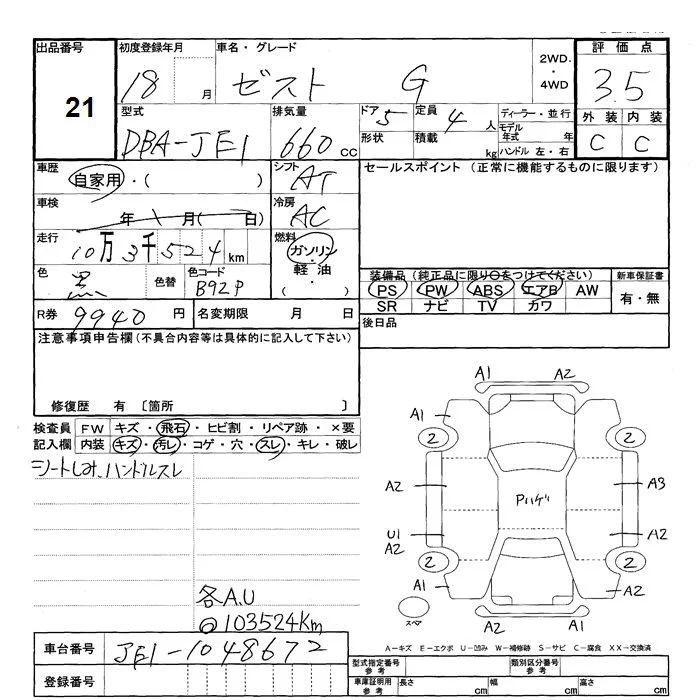 出品番号 初度登録年月 車名・グレード 評価点
21 18 月 ゼスト G 2WD・4WD 3.5
型式 排気量 ドア 5 定員 4 人 ディーラー・並行 外装 内装
DBA-JE1 660 cc 形状 積載 kg モデル年式 年 ハンドル 左・右 C C
車歴 自家用・( ) シフト AT セールスポイント (正常に機能するものに限ります)
車検 年 月( 日) 冷房 AC
走行 10万3千524km 燃料 ガソリン・軽油・( )
色 黒 色替 色コード B92P 装備品 (純正品に限り○をつけてください) 新車保証書
PS PW ABS エアB AW 有・無
SR ナビ TV カワ
R券 9940 円 名変期限 月 日 後日品
注意事項申告欄(不具合内容等は具体的に記入して下さい)
修復歴 有 〔箇所 〕
検査員 FW キズ・飛石・ヒビ割・リペア跡・×要
記入欄 内装 キズ・汚レ・コゲ・穴・スレ・キレ・破レ
シートしみ、ハンドルスレ
各A.U
103524Km
A1 A2
A1
2 2
A2 A3
Pハゲ
U1 A2
A2
2 2
A1 A2
スペア
A2 A1
A-キズ E-エクボ U-凹み W-補修跡 S-サビ C-腐食 XX-交換済
車台番号 JE1-1048672
登録番号
型式指定番号 参考 類別区分番号 参考
車庫証明用 参考 長さ cm 幅 cm 高さ cm